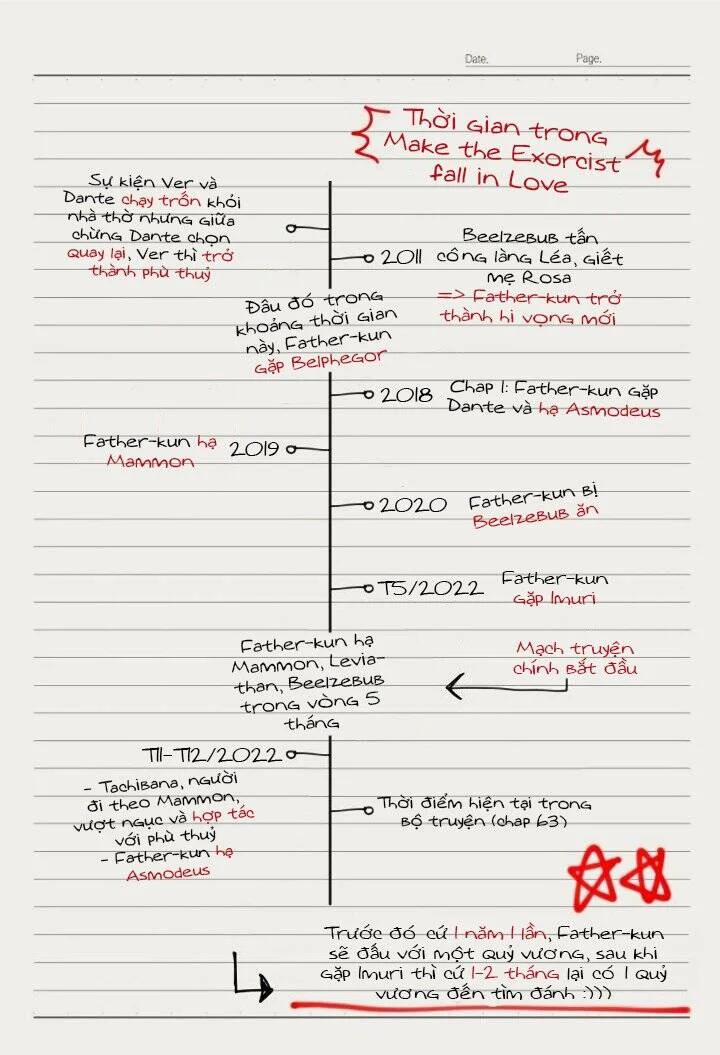 Date.
Page.
Thời gian trong
Make the Exorcist
fall in Love
Sự kiện Ver và
Dante chạy trốn khỏi
nhà thờ nhưng giữa
chừng Dante chọn
quay lại, Ver thì trở
thành phù thuỷ
2011
Beelzebub tấn
công làng Léa, giết
mẹ Rosa
=> Father-kun trở
thành hi vọng mới
Đâu đó trong
khoảng thời gian
này, Father-kun
gặp Belphegor
2018
Chap 1: Father-kun gặp
Dante và hạ Asmodeus
Father-kun hạ
Mammon
2019
2020
Father-kun bị
Beelzebub ăn
T5/2022
Father-kun
gặp Imuri
Father-kun hạ
Mammon, Levia-
than, Beelzebub
trong vòng 5
tháng
Mạch truyện
chính bắt đầu
T11-T12/2022
- Tachibana, người
đi theo Mammon,
vượt ngục và hợp tác
với phù thuỷ
- Father-kun hạ
Asmodeus
Thời điểm hiện tại trong
bộ truyện (chap 63)
Trước đó cứ 1 năm 1 lần, Father-kun
sẽ đấu với một quỷ vương, sau khi
gặp Imuri thì cứ 1-2 tháng lại có 1 quỷ
vương đến tìm đánh :)))